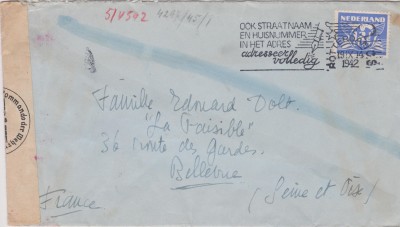 5/V542 4242/45/1
OOK STRAATNAAM
EN HUISNUMMER
IN HET ADRES
adresseer
volledig
NEDERLAND
1942
Commando der Weh
Famille Edouard Dolt.
"La Paisible"
36 route des Gardes.
Bellevue
(Seine et Oise)
France